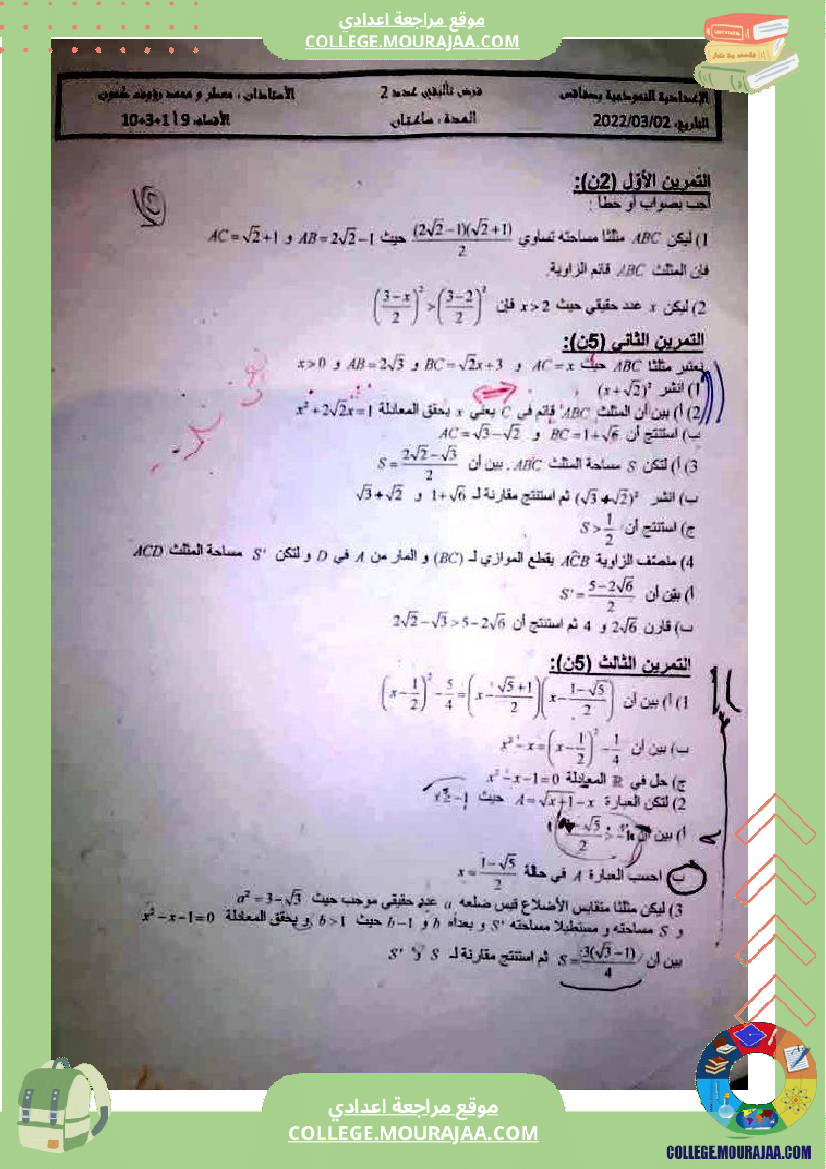 موقع مراجعة اعدادي
COLLEGE.MOURAJAA.COM
الإعدادية النموذجية بصفاقس
فرض تأليفي عدد 2
الأستاذان : معطر و محمد رؤوف
التاريخ: 2022/03/02
المدة : ساعتان
الأقسام: 9 أ 1+3+10
التمرين الأول (2ن):
أجب بصواب أو خطأ :
1) ليكن ABC مثلثا مساحته تساوي (2√2−1)(√2+1)/2 حيث AB = 2√2−1 و AC = √2+1
فإن المثلث ABC قائم الزاوية.
2) ليكن x عدد حقيقي حيث x > 2 فإن ((3−x)/2)² > ((3−2)/2)²
التمرين الثاني (5ن):
نعتبر مثلثا ABC حيث AC = x و BC = √2x+3 و AB = 2√3 و x > 0
1) انشر (x+√2)²
2) أ) بين أن المثلث ABC قائم في C يعني x يحقق المعادلة x²+2√2x = 1
ب) استنتج أن BC = 1+√6 و AC = √3−√2
3) أ) لتكن S مساحة المثلث ABC. بين أن S = (2√2−√3)/2
ب) انشر (√3+√2)² ثم استنتج مقارنة لـ 1+√6 و √3+√2
ج) استنتج أن S > 1/2
4) منصف الزاوية ACB يقطع الموازي لـ (BC) و المار من A في D و لتكن S' مساحة المثلث ACD
أ) بين أن S' = (5−2√6)/2
ب) قارن 2√6 و 4 ثم استنتج أن 2√2−√3 > 5−2√6
التمرين الثالث (5ن):
1) أ) بين أن (x−1/2)² − 5/4 = (x−(√5+1)/2)(x−(1−√5)/2)
ب) بين أن x²−x = (x−1/2)² − 1/4
ج) حل في ℝ المعادلة x²−x−1=0
2) لتكن العبارة A = √(x+1)−x حيث x≥−1
أ) بين أن
ب) احسب العبارة A في حالة x = (1−√5)/2
3) ليكن مثلثا متقايس الأضلاع قيس ضلعه a عدد حقيقي موجب حيث a² = 3−√3
و S مساحته و مستطيلا مساحته S' و بعداه b و b−1 حيث b>1 و يحقق المعادلة x²−x−1=0
بين أن S = 3(√3−1)/4 ثم استنتج مقارنة لـ S و S'
موقع مراجعة اعدادي
COLLEGE.MOURAJAA.COM
COLLEGE.MOURAJAA.COM